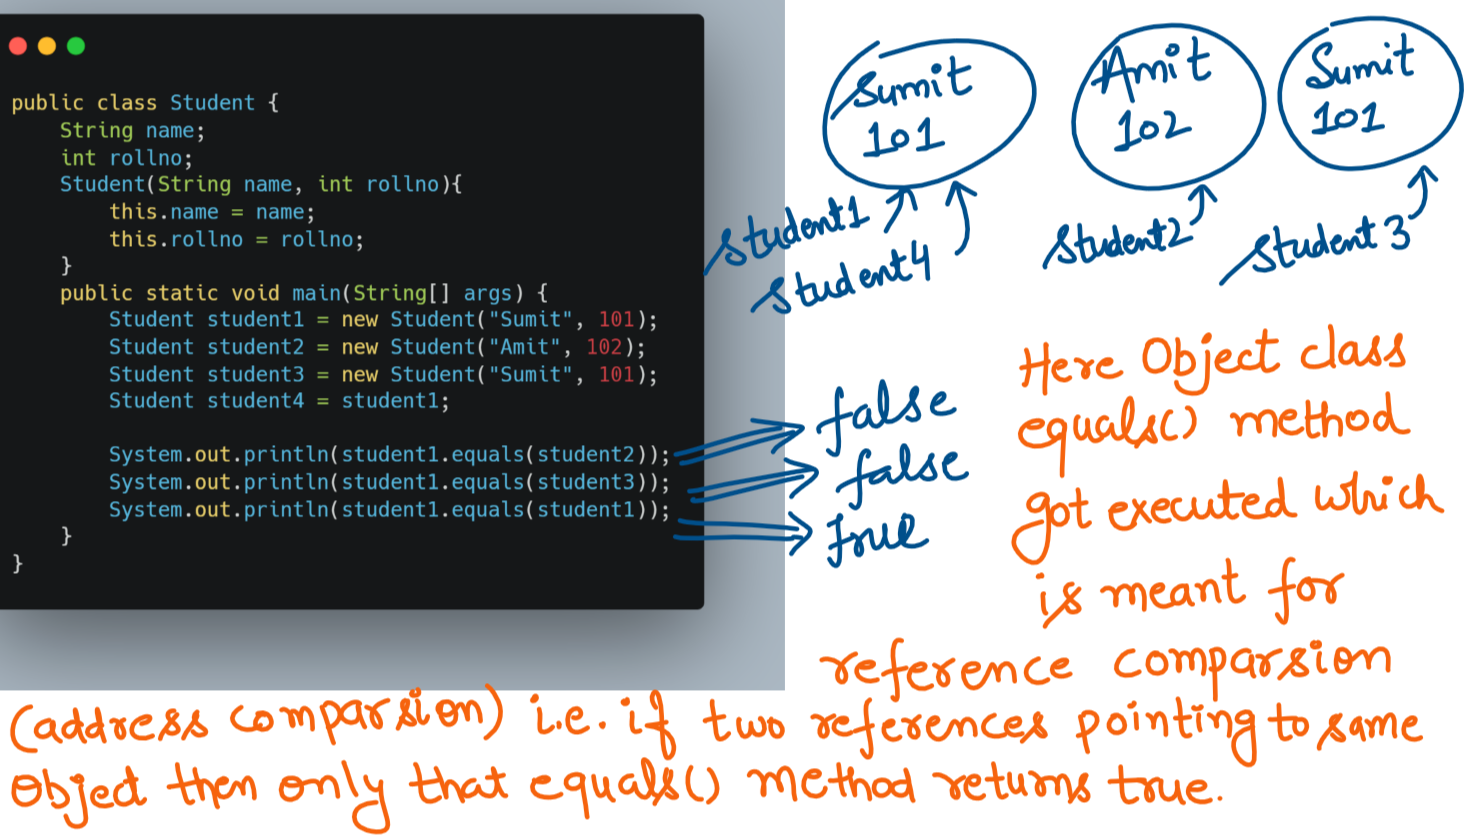 public class Student {
String name;
int rollno;
Student(String name, int rollno){
this.name = name;
this.rollno = rollno;
}
public static void main(String[] args) {
Student student1 = new Student("Sumit", 101);
Student student2 = new Student("Amit", 102);
Student student3 = new Student("Sumit", 101);
Student student4 = student1;
System.out.println(student1.equals(student2));
System.out.println(student1.equals(student3));
System.out.println(student1.equals(student1));
}
}
Sumit
101
Amit
102
Sumit
101
student1
student4
student2
student3
false
false
true
Here Object class
equals() method
got executed which
is meant for
reference comparsion
(address comparsion) i.e. if two references pointing to same
object then only that equals() method returns true.